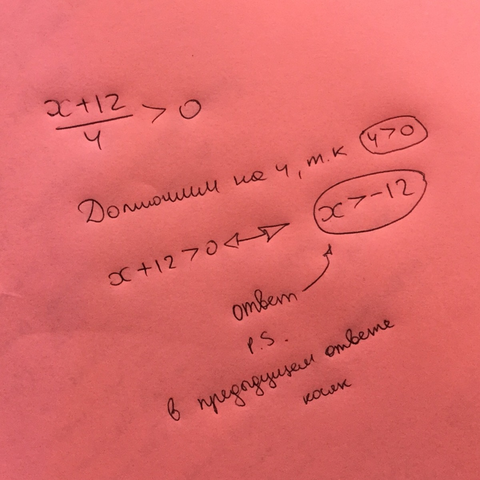 x+12
4
> 0
Домножим на 4, т.к 4>0
x+12>0 ⟷ x>-12
ответ
P.S.
в предыдущем ответе
косяк